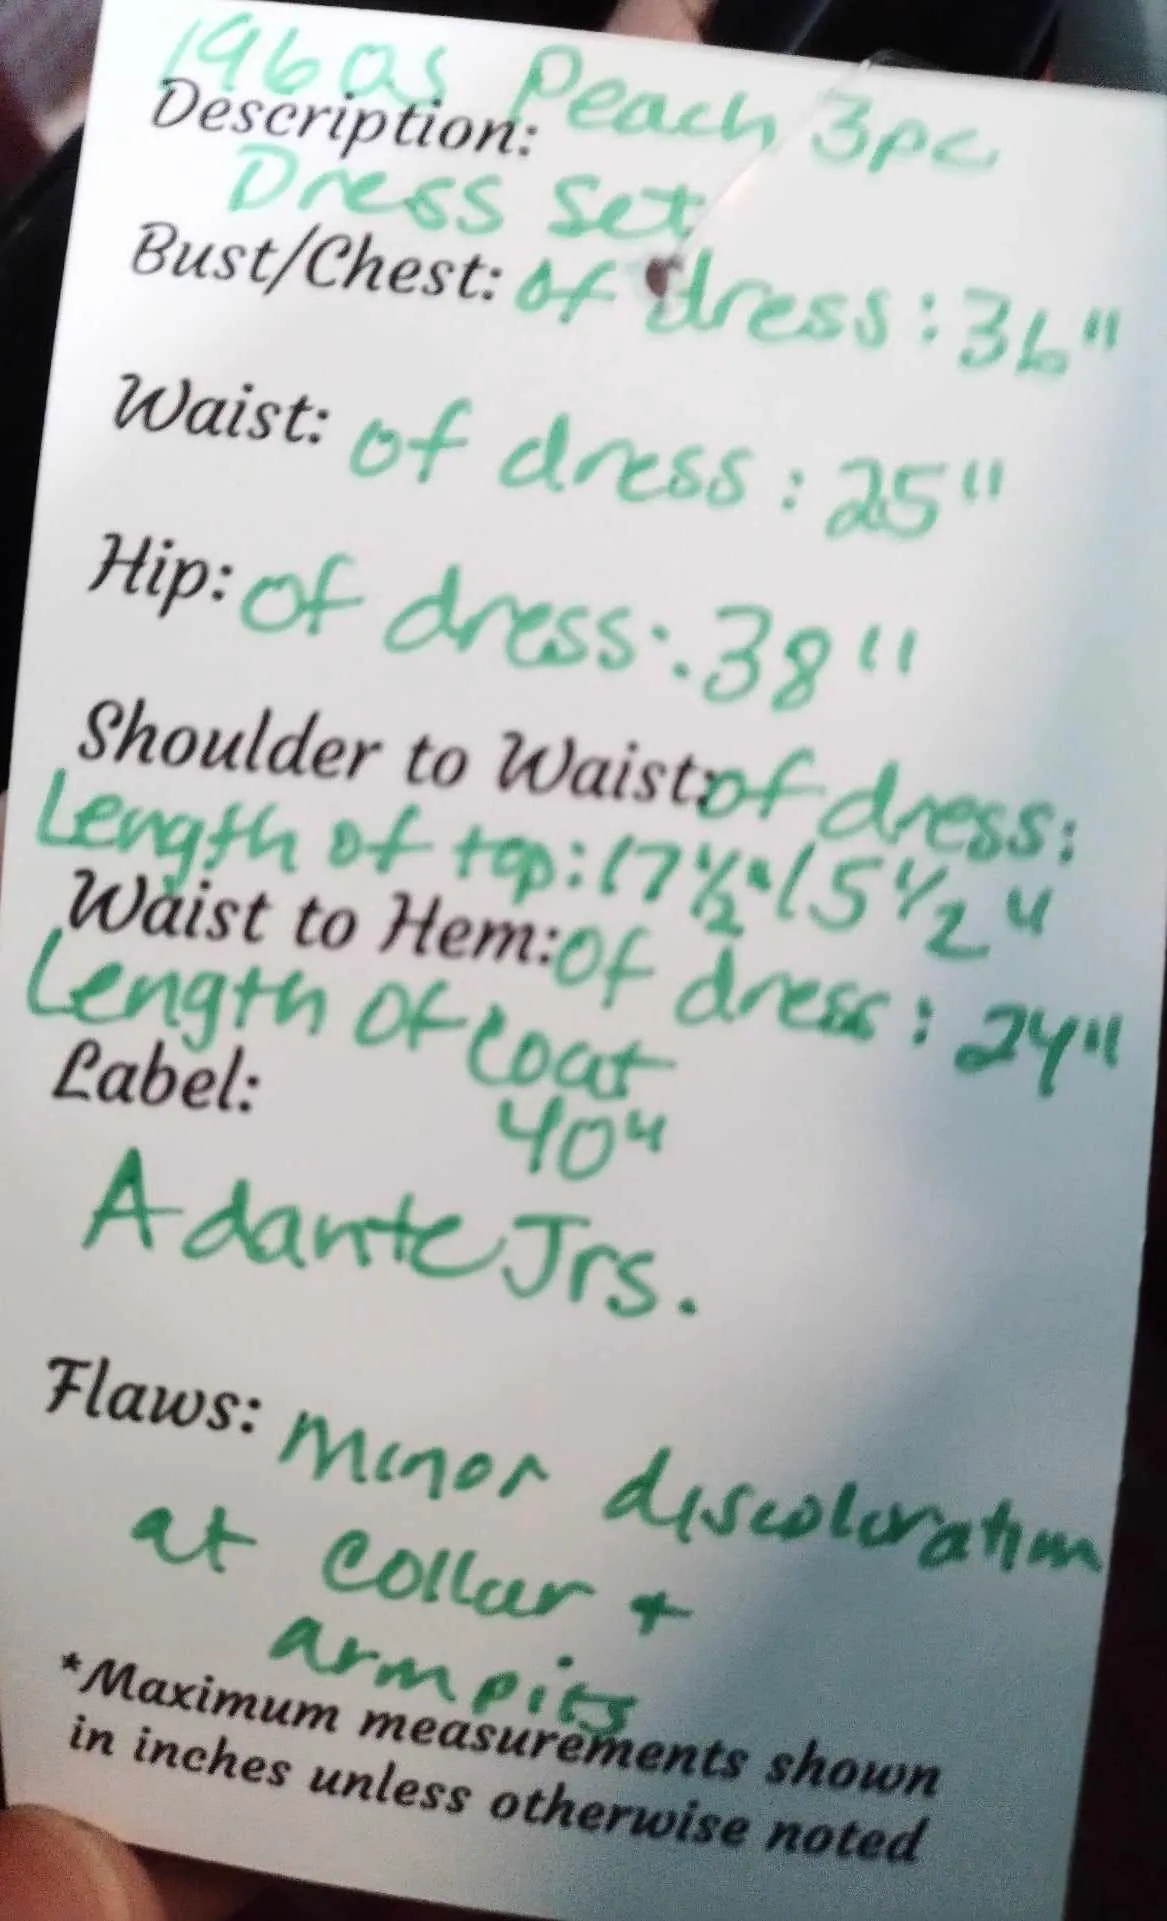 1960s Peach 3pc
Description:
Dress Set
Bust/Chest: of dress: 36"
Waist: of dress: 25"
Hip: of dress: 38"
Shoulder to Waist: of dress:
Length of top: 17 1/2" 15 1/2"
Waist to Hem: of dress: 24"
Length of coat
Label:
40"
Adante Jrs.
Flaws: Minor discoloration
at collar +
armpits
*Maximum measurements shown
in inches unless otherwise noted